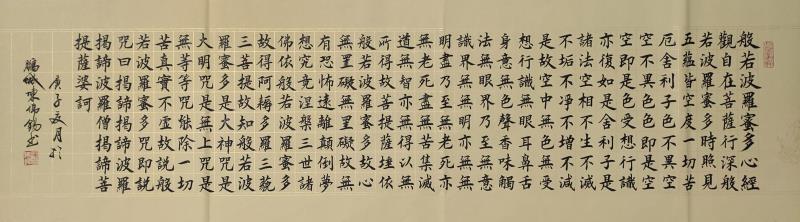 般若波羅蜜多心經
觀自在菩薩行深般
若波羅蜜多時照見
五蘊皆空度一切苦
厄舍利子色不異空
空不異色色即是空
空即是色受想行識
亦復如是舍利子是
諸法空相不生不滅
不垢不凈不增不減
是故空中無色無受
想行識無眼耳鼻舌
身意無色聲香味觸
法無眼界乃至無意
識界無無明亦無無
明盡乃至無老死亦
無老死盡無苦集滅
道無智亦無得以無
所得故菩提薩埵依
般若波羅蜜多故心
無罣礙無罣礙故無
有恐怖遠離顛倒夢
想究竟涅槃三世諸
佛依般若波羅蜜多
故得阿耨多羅三藐
三菩提故知般若波
羅蜜多是大神咒是
大明咒是無上咒是
無等等咒能除一切
苦真實不虛故說般
若波羅蜜多咒即說
咒曰揭諦揭諦波羅
揭諦波羅僧揭諦菩
提薩婆訶
庚子夏月於
鵬城陳偉錫書